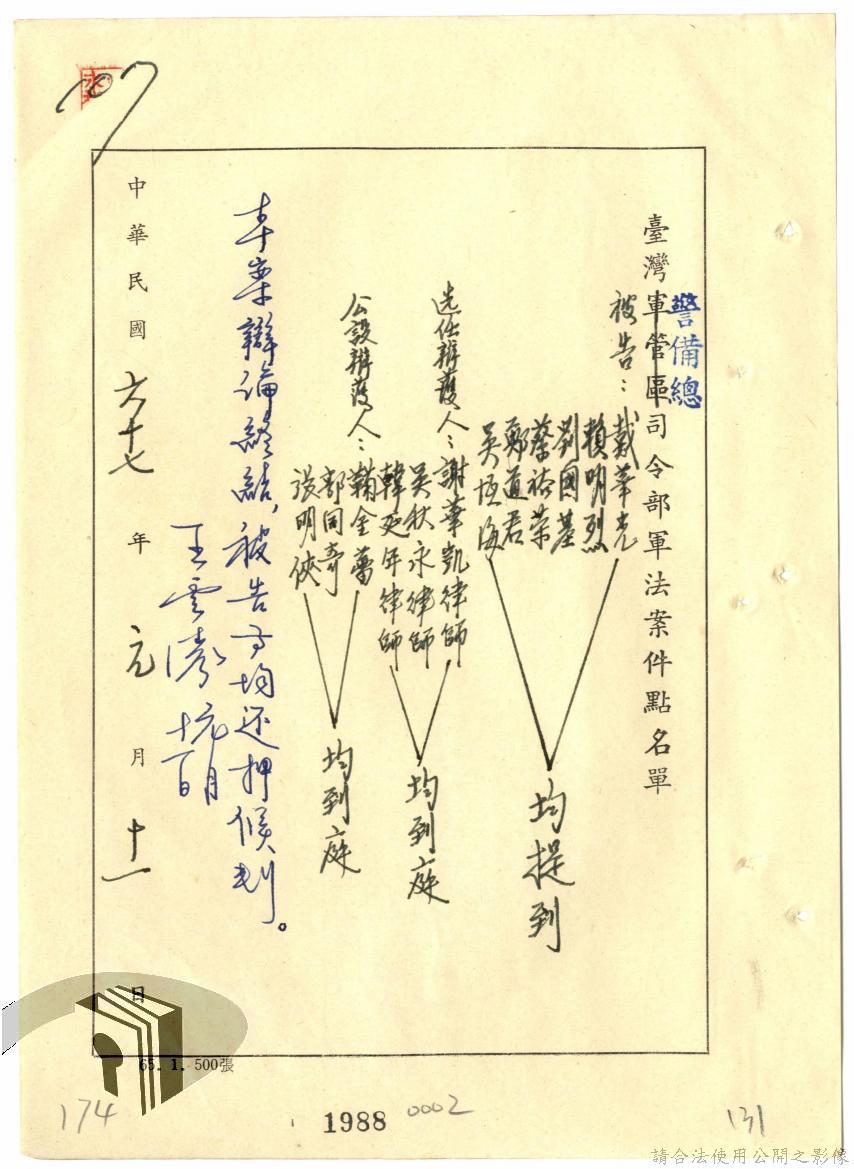 107
臺灣軍管區司令部軍法案件點名單
警備總
被告：戴華光
賴明烈
劉國基
蔡裕榮
鄭道君
吳恆海
均提到
选任辯護人：謝華凱律師
吳秋永律師
韓延年律師
均到庭
公設辯護人：鞠金蕾
郜同奇
張明俠
均到庭
本案辯論終結，被告等均还押候判。
王雲濤
中華民國六十七年元月十一日
65. 1. 500張
174
1988
0002
131
請合法使用公開之影像